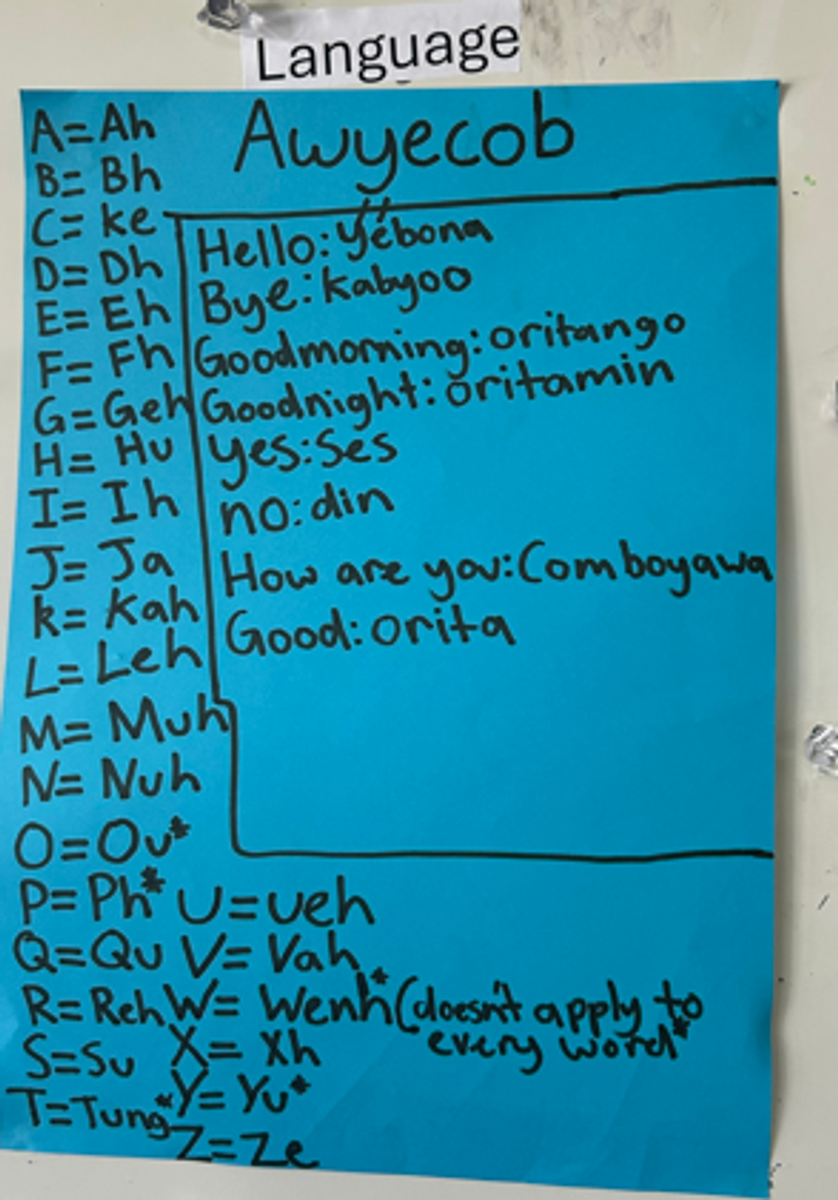 Language
Awyecob
A=Ah
B=Bh
C=ke
D=Dh
E=Eh
F=Fh
G=Geh
H=Hu
I=Ih
J=Ja
k=Kah
L=Leh
M=Muh
N=Nuh
O=Ou*
P=Ph*
Q=Qu
R=Reh
S=Su
T=Tung*
U=ueh
V=Vah
W=Wenh*(doesn't apply to
every word*
X=Xh
Y=Yu*
Z=Ze
Hello:Yëbona
Bye:kabyoo
Goodmorning:oritango
Goodnight:oritamin
yes:Ses
no:din
How are you:Comboyawa
Good:orita